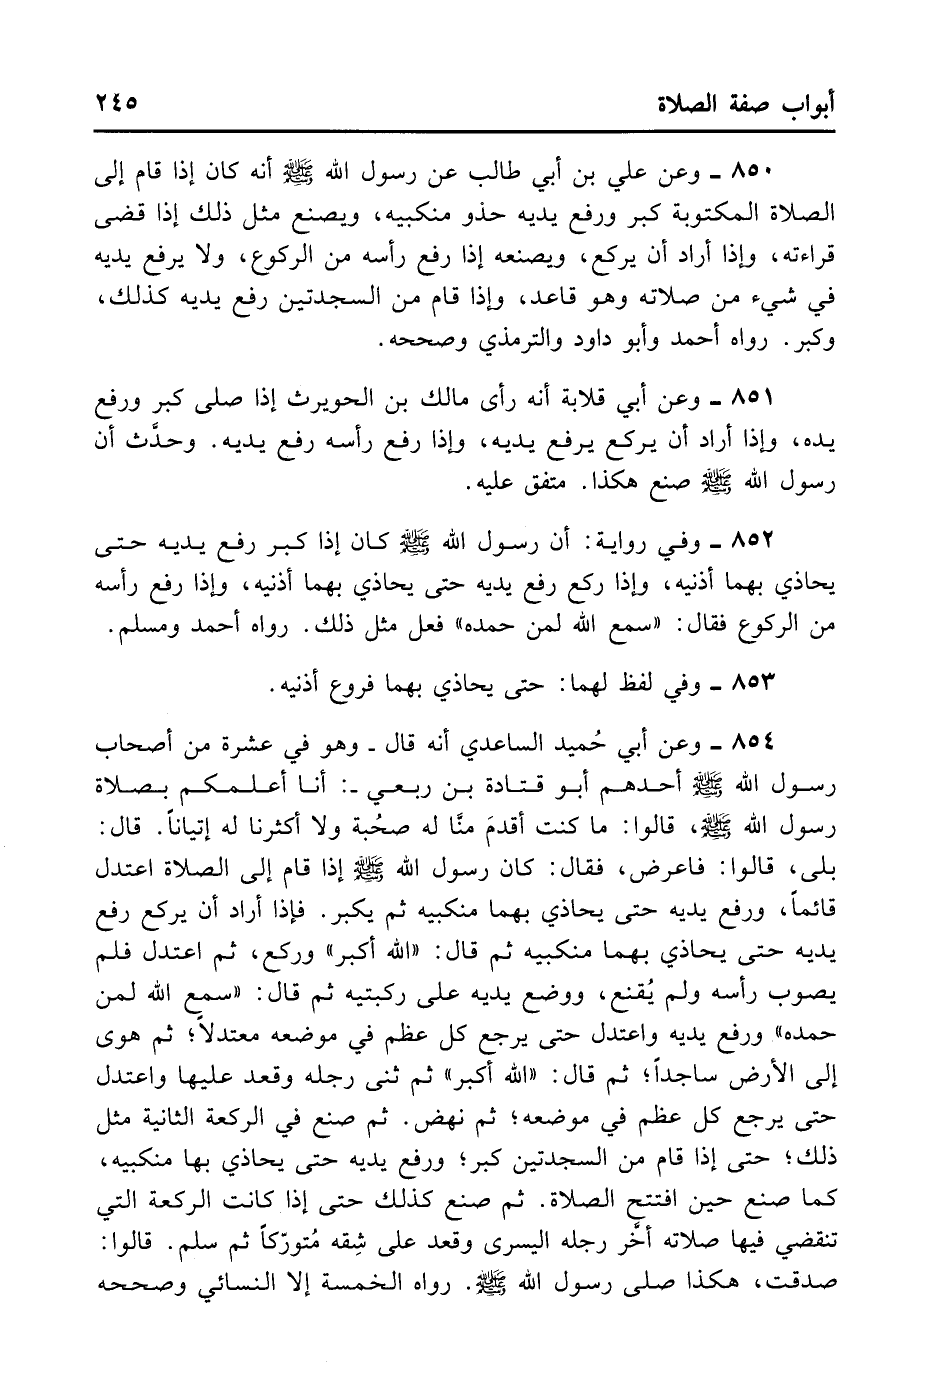 أبواب صفة الصلاة ٢٤٥
٨٥٠ ـ وعن علي بن أبي طالب عن رسول الله ﷺ أنه كان إذا قام إلى
الصلاة المكتوبة كبر ورفع يديه حذو منكبيه، ويصنع مثل ذلك إذا قضى
قراءته، وإذا أراد أن يركع، ويصنعه إذا رفع رأسه من الركوع، ولا يرفع يديه
في شيء من صلاته وهو قاعد، وإذا قام من السجدتين رفع يديه كذلك،
وكبر. رواه أحمد وأبو داود والترمذي وصححه.
٨٥١ ـ وعن أبي قلابة أنه رأى مالك بن الحويرث إذا صلى كبر ورفع
يده، وإذا أراد أن يركع يرفع يديه، وإذا رفع رأسه رفع يديه. وحدَّث أن
رسول الله ﷺ صنع هكذا. متفق عليه.
٨٥٢ ـ وفي رواية: أن رسول الله ﷺ كان إذا كبر رفع يديه حتى
يحاذي بهما أذنيه، وإذا ركع رفع يديه حتى يحاذي بهما أذنيه، وإذا رفع رأسه
من الركوع فقال: «سمع الله لمن حمده» فعل مثل ذلك. رواه أحمد ومسلم.
٨٥٣ ـ وفي لفظ لهما: حتى يحاذي بهما فروع أذنيه.
٨٥٤ ـ وعن أبي حُميد الساعدي أنه قال ـ وهو في عشرة من أصحاب
رسول الله ﷺ أحدهم أبو قتادة بن ربعي ـ: أنا أعلمكم بصلاة
رسول الله ﷺ، قالوا: ما كنت أقدمَ منَّا له صحُبة ولا أكثرنا له إتياناً. قال:
بلى، قالوا: فاعرض، فقال: كان رسول الله ﷺ إذا قام إلى الصلاة اعتدل
قائماً، ورفع يديه حتى يحاذي بهما منكبيه ثم يكبر. فإذا أراد أن يركع رفع
يديه حتى يحاذي بهما منكبيه ثم قال: «الله أكبر» وركع، ثم اعتدل فلم
يصوب رأسه ولم يُقنع، ووضع يديه على ركبتيه ثم قال: «سمع الله لمن
حمده» ورفع يديه واعتدل حتى يرجع كل عظم في موضعه معتدلاً؛ ثم هوى
إلى الأرض ساجداً؛ ثم قال: «الله أكبر» ثم ثنى رجله وقعد عليها واعتدل
حتى يرجع كل عظم في موضعه؛ ثم نهض. ثم صنع في الركعة الثانية مثل
ذلك؛ حتى إذا قام من السجدتين كبر؛ ورفع يديه حتى يحاذي بها منكبيه،
كما صنع حين افتتح الصلاة. ثم صنع كذلك حتى إذا كانت الركعة التي
تنقضي فيها صلاته أخَّر رجله اليسرى وقعد على شِقه مُتورّكاً ثم سلم. قالوا:
صدقت، هكذا صلى رسول الله ﷺ. رواه الخمسة إلا النسائي وصححه